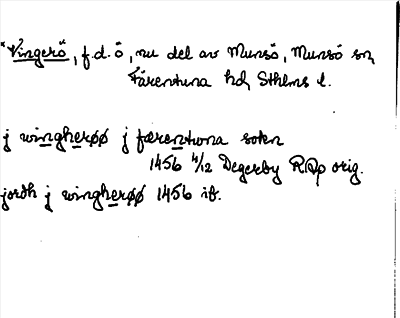 *Vingerö, f.d. ö, nu del av Munsö, Munsö sn,
Färentuna hd, Sthlms l.
j wingherøø j færentwna sokn
1456 4/12 Degerby RAp orig.
jordh j wingherøø 1456 ib.